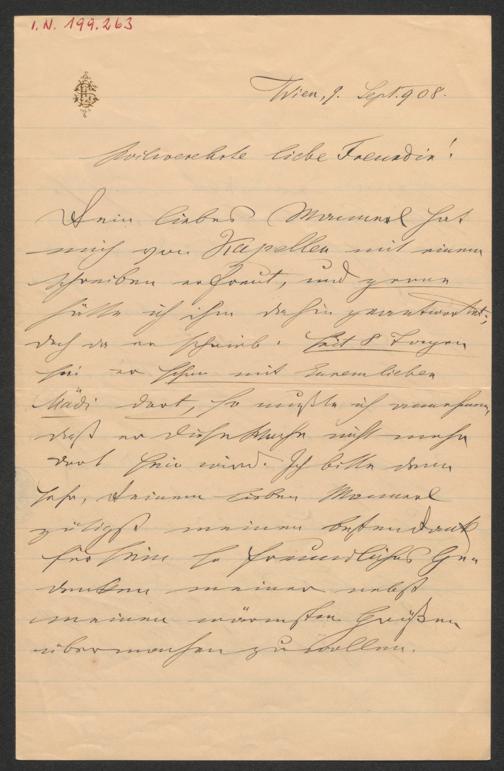 I.N. 199.263
Wien, 9. Sept. 908.
liebe Freundin!
Dein liebes Mannerl hat
mich von Kapellen mit einem
Schreiben erfreut, und gerne
hätte ich ihm dahin geantwortet,
doch da er schrieb: seit 8 Tagen
sei er schon mit Eurem lieben
Mädi dort, so mußte ich annehmen,
daß er diese Woche nicht mehr
dort sein wird. Ich bitte denn
sehr, Deinem lieben Mannerl
gütigst meinen besten Dank
für sein so freundliches Ge-
denken meiner nebst
meinen wärmsten Grüßen
übermachen zu wollen.